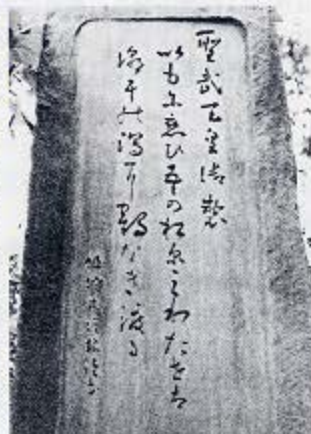 聖武天皇御製
いもに恋ひ吾の松原みわたせは
潮干の潟に鶴なき渡る